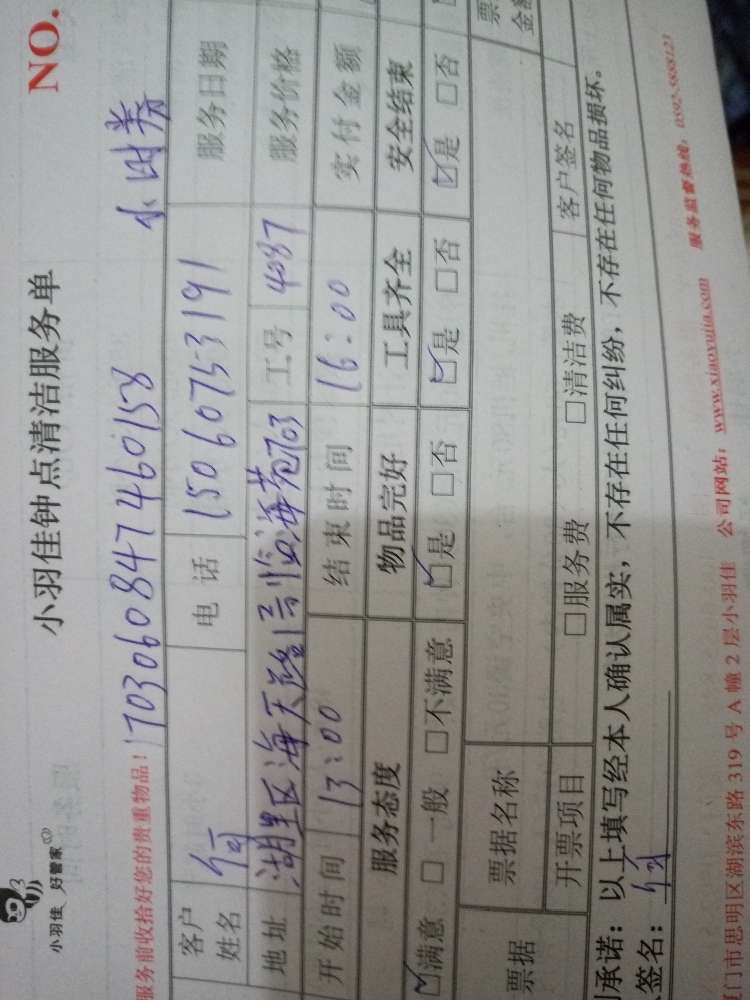 小羽佳 好管家
小羽佳钟点清洁服务单
NO.
服务前收拾好您的贵重物品! 1703060847460158 小时券
客户姓名 何 电话 15060753191 服务日期
地址 湖里区海天路 临海苑703 工号 4087 服务价格
开始时间 13:00 结束时间 16:00 实付金额
服务态度 物品完好 工具齐全 安全结束
☑满意 □一般 □不满意 ☑是 □否 ☑是 □否 ☑是 □否
票据 票据名称 票
开票项目 □服务费 □清洁费 客户签名
承诺: 以上填写经本人确认属实,不存在任何纠纷,不存在任何物品损坏。
签名: 何
门市思明区湖滨东路 319 号 A 幢 2 层小羽佳 公司网站: www.xiaoyujia.com 服务监督热线: 0592-5888123